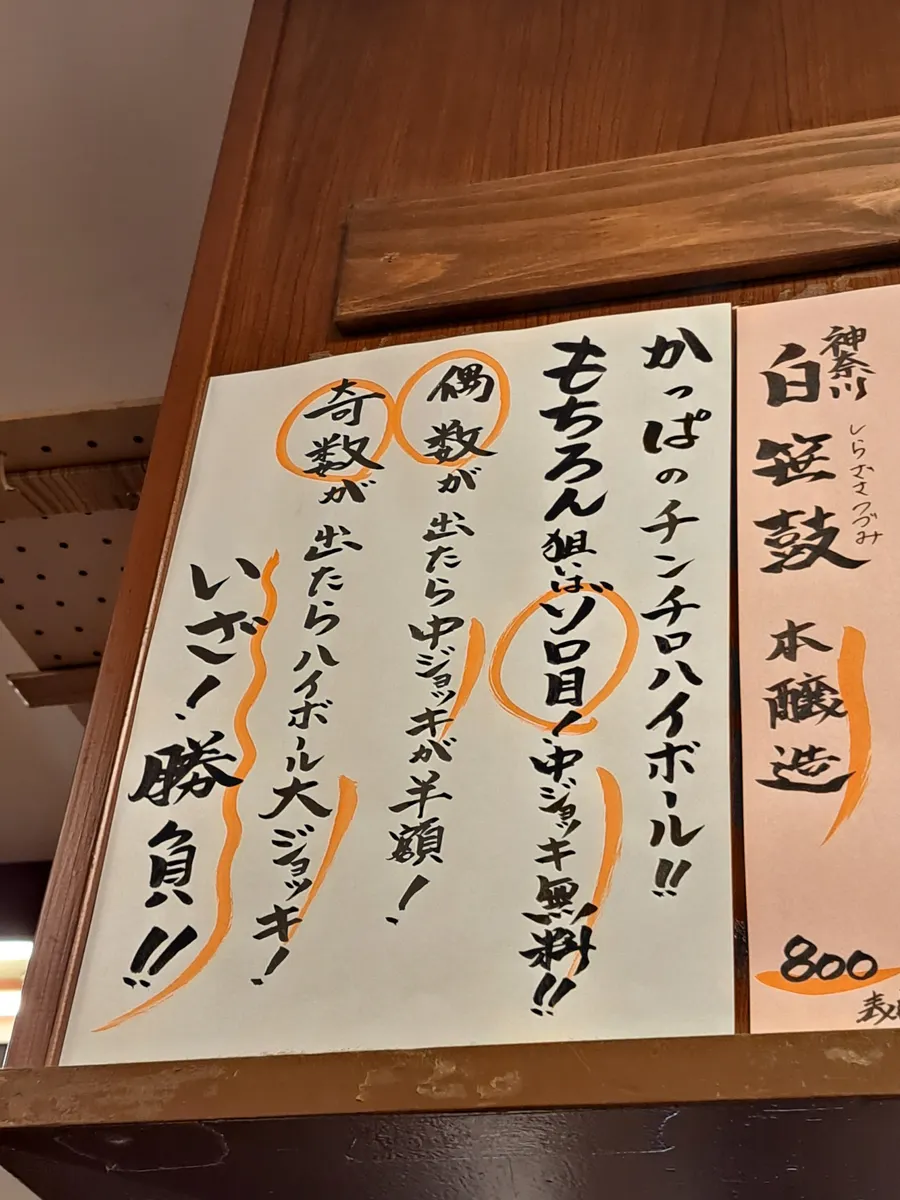 神奈川
白笹鼓
しらささつづみ
本醸造
800
かっぱのチンチロハイボール!!
もちろん狙いはゾロ目!中ジョッキ無料!!
偶数が出たら中ジョッキが半額!
奇数が出たらハイボール大ジョッキ!
いざ!勝負!!